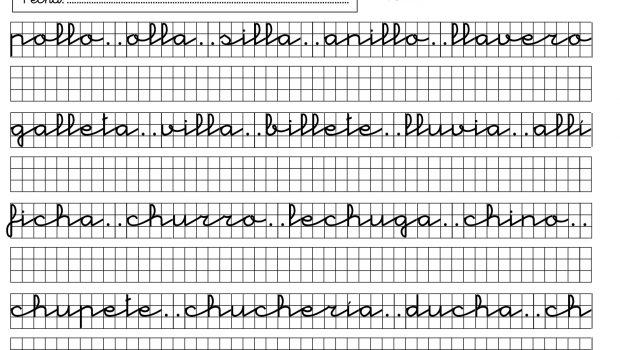 Fecha:
pollo..olla..silla..anillo..llavero
galleta..villa..billete..lluvia..allí
ficha..churro..lechuga..chino..
chupete..chuchería..ducha..ch